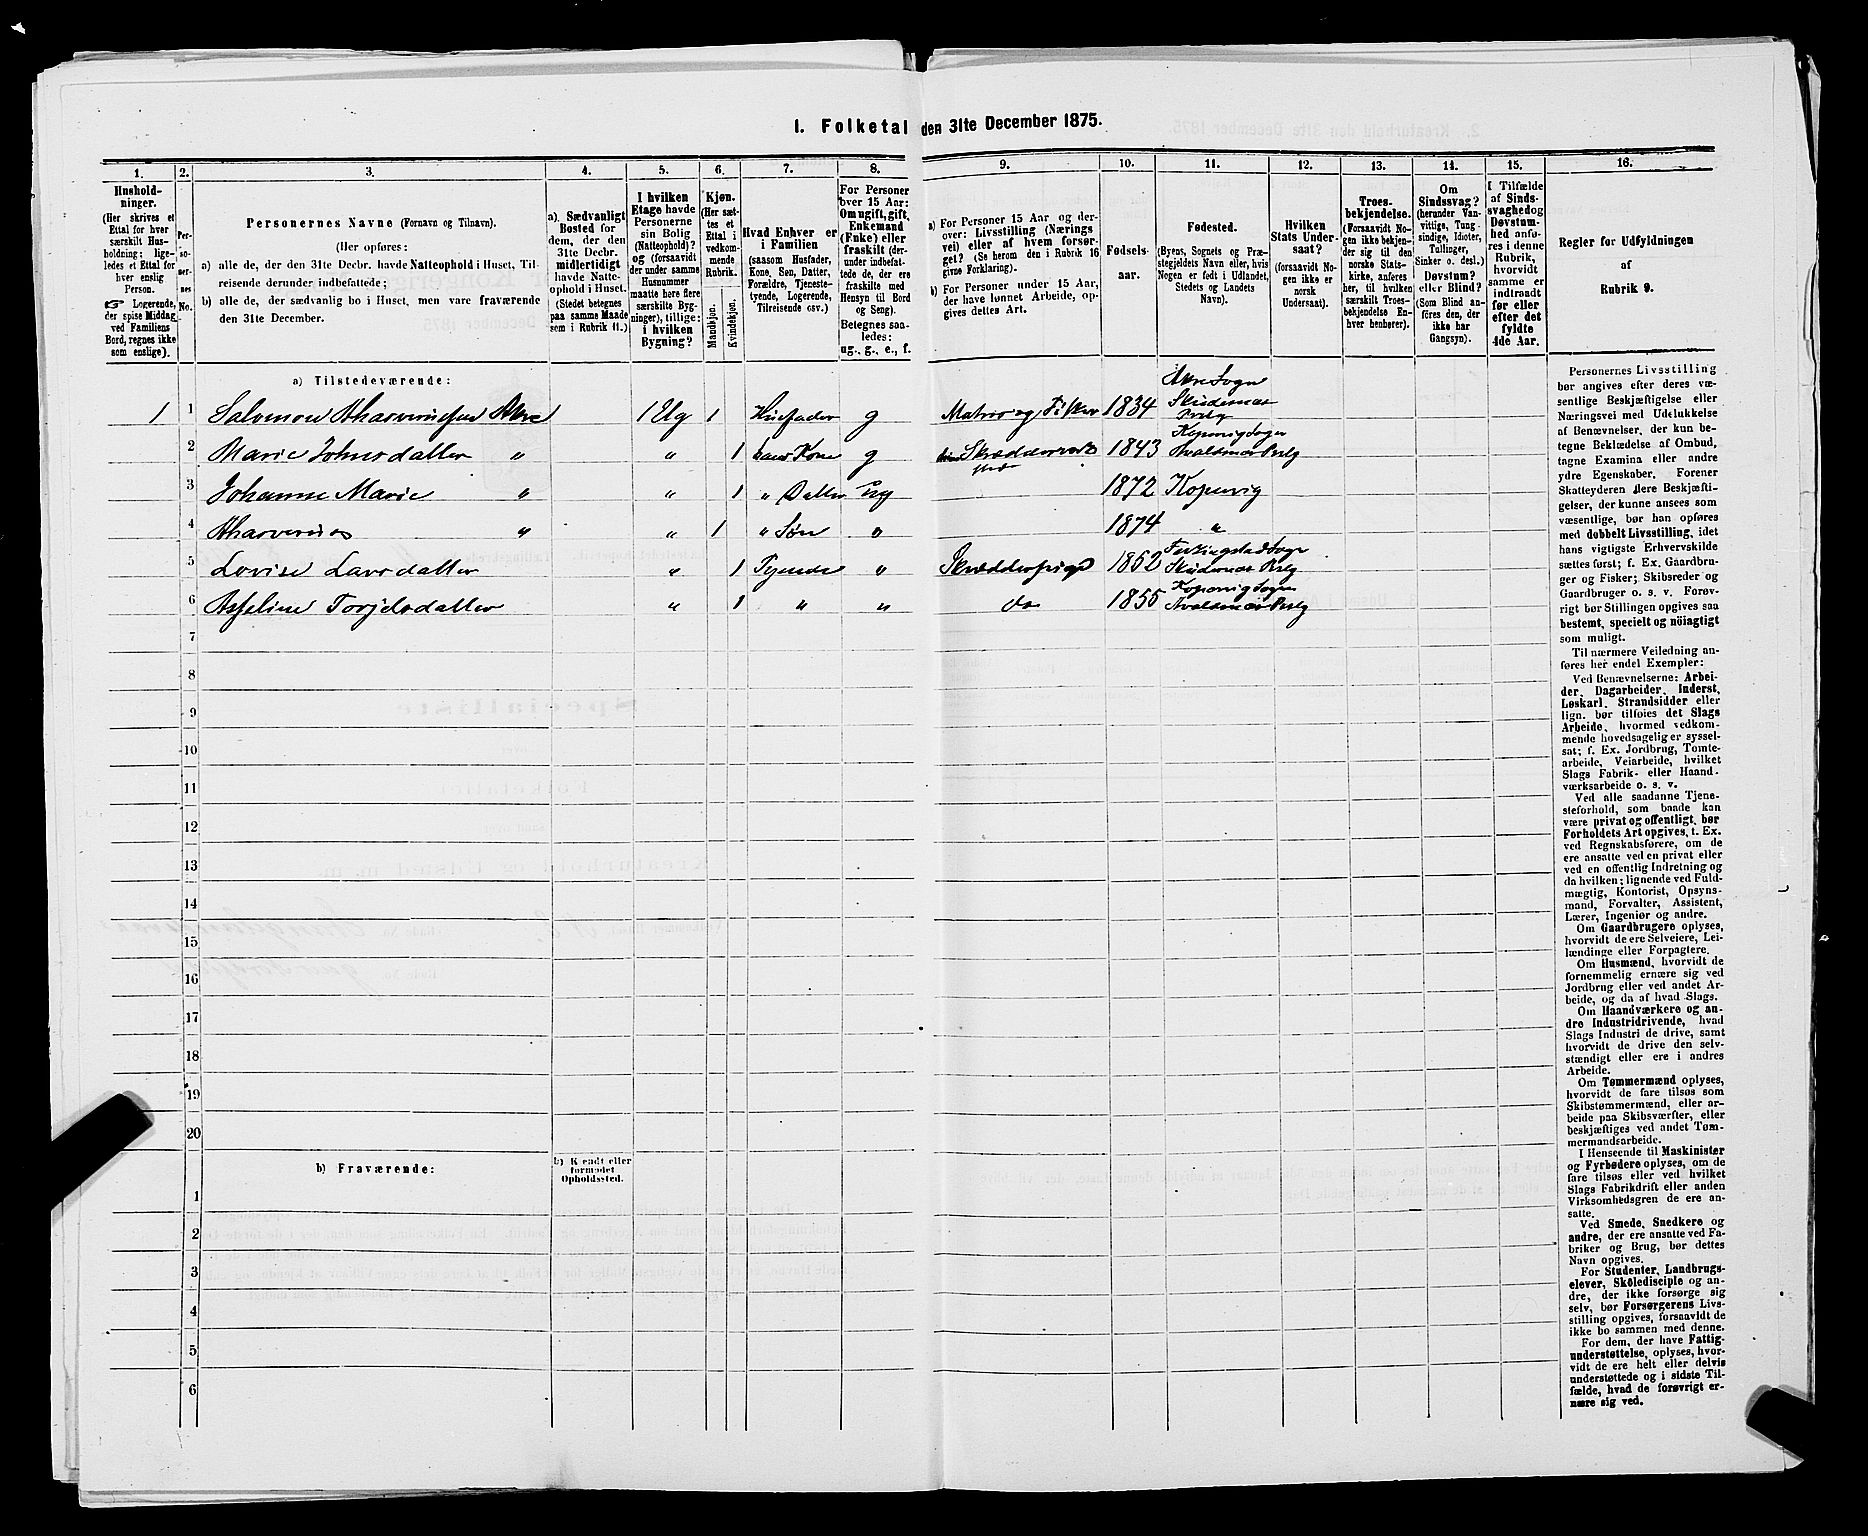 1. Folketal den 31te December 1875.
1. 2. 3. 4. 5. 6. 7. 8. 9. 10. 11. 12. 13. 14. 15. 16.
Husholdninger.
(Her skrives et
Ettal for hver
særskilt Husholdning; ligeledes
et Ettal for
hver enslig
Person.
☞ Logerende,
der spise Middag
ved Familiens
Bord, regnes ikke
som enslige).
Personernes
No.
Personernes Navne (Fornavn og Tilnavn).
(Her opføres:
a) alle de, der den 31te Decbr. havde Natteophold i Huset, Tilreisende
derunder indbefattede;
b) alle de, der sædvanlig bo i Huset, men vare fraværende
den 31te December.
a) Sædvanligt
Bosted for
dem, der den
31te Decbr.
midlertidigt
havde Natteophold
i Huset.
(Stedet betegnes
paa samme Maade
som i Rubrik 11.)
I hvilken
Etage havde
Personerne
sin Bolig
(Natteophold)?
og (forsaavidt
der under samme
Husnummer
maatte høre flere
særskilte Bygninger),
tillige:
i hvilken
Bygning?
Kjøn.
(Her sættes
et
Ettal i
vedkommende
Rubrik.
Mandkjøn.
Kvindekjøn.
Hvad Enhver er
i Familien
(saasom Husfader,
Kone, Søn, Datter,
Forældre, Tjenestetyende,
Logerende,
Tilreisende osv.)
For Personer
over 15 Aar:
Om ugift, gift,
Enkemand
(Enke) eller
fraskilt (derunder
indbefattede
de, der ere
fraskilte med
Hensyn til Bord
og Seng).
Betegnes saaledes:
ug., g., e., f.
a) For Personer 15 Aar og derover:
Livsstilling (Næringsvei)
eller af hvem forsørget?
(Se herom den i Rubrik 16
givne Forklaring).
b) For Personer under 15 Aar,
der have lønnet Arbeide, opgives
dettes Art.
Fødselsaar.
Fødested.
(Byens, Sognets og Præstegjeldets
Navn eller, hvis
Nogen er født i Udlandet,
Stedets og Landets
Navn).
Hvilken
Stats Undersaat?
(forsaavidt Nogen
ikke er
norsk
Undersaat).
Troesbekjendelse.
(Forsaavidt Nogen
ikke bekjender
sig til den
norske Statskirke,
anføres
her, til hvilken
særskilt Troesbekjendelse
Enhver
henhører).
Om
Sindssvag?
(herunder Vanvittige,
Tungsindige,
Idioter,
Tullinger,
Sinker o. desl.)
Døvstum?
eller Blind?
(Som Blind anføres
den, der
ikke har
Gangsyn).
I Tilfælde
af Sindssvaghed
og
Døvstumhed
anføres
i denne
Rubrik,
hvorvidt
samme er
indtraadt
før eller
efter det
fyldte
4de Aar.
Regler for Udfyldningen
af
Rubrik 9.
a) Tilstedeværende:
1 1 Salomon Ahasverusen Akre 1 Ug 1 Husfader g Matros og Fisker 1834 Akre Sogn Skudesnæs Prstg
2 Marie Johnsdatter " " 1 hans Kone g 1843 Kopervig Sogn Avaldsnæs Prstg
3 Johanne Marie " " 1 " Datter ug 1872 Kopervig
4 Ahasverus " " 1 " Søn " 1874 "
5 Lovise Larsdatter " 1 Tyende " Skrædderpige 1852 Skudesnæs Prstg
6 Asseline Torjelsdatter " 1 " " do 1855 Kopervig Sogn Avaldsnæs Prstg
7
8
9
10
11
12
13
14
15
16
17
18
19
20
b) Fraværende:
b) Kjendt eller
formodet
Opholdssted.
1
2
3
4
5
6
Personernes Livsstilling
bør angives efter deres væsentlige
Beskjæftigelse eller
Næringsvei med Udelukkelse
af Benævnelser, der kun betegne
Beklædelse af Ombud,
tagne Examina eller andre
ydre Egenskaber. Forener
Skatteyderen flere Beskjæftigelser,
der kunne ansees som
væsentlige, bør han opføres
med dobbelt Livsstilling, idet
hans vigtigste Erhvervskilde
sættes først; f. Ex. Gaardbruger
og Fisker; Skibsreder og
Gaardbruger o. s. v. Forøvrigt
bør Stillingen opgives saa
bestemt, specielt og nöiagtigt
som muligt.
Til nærmere Veiledning anføres
her endel Exempler:
Ved Benævnelserne: Arbeider,
Dagarbeider, Inderst,
Løskarl, Strandsidder eller
lign. bør tilføies det Slags
Arbeide, hvormed vedkommende
hovedsagelig er sysselsat;
f. Ex. Jordbrug, Tomtearbeide,
Veiarbeide, hvilket
Slags Fabrik- eller Haandværksarbeide
o. s. v.
Ved alle saadanne Tjenesteforhold,
som baade kan
være privat og offentligt, bør
Forholdets Art opgives, t. Ex.
ved Regnskabsførere, om de
ere ansatte ved en privat eller
ved en offentlig Indretning og
da hvilken; lignende ved Fuldmægtig,
Kontorist, Opsynsmand,
Forvalter, Assistent,
Lærer, Ingeniør og andre.
Om Gaardbrugere oplyses,
hvorvidt de ere Selveiere, Leilændinge
eller Forpagtere.
Om Husmænd, hvorvidt de
fornemmelig ernære sig ved
Jordbrug eller ved andet Arbeide,
og da af hvad Slags.
Om Haandværkere og andre
Industridrivende, hvad
Slags Industri de drive, samt
hvorvidt de drive den selvstændigt
eller ere i andres
Arbeide.
Om Tømmermænd oplyses,
hvorvidt de fare tilsøs som
Skibstømmermænd, eller arbeide
paa Skibsværfter, eller
beskjæftiges ved andet Tømmermandsarbeide.
I Henseende til Maskinister
og Fyrbødere oplyses, om de
fare tilsøs eller ved hvilket
Slags Fabrikdrift eller anden
Virksomhedsgren de ere ansatte.
Ved Smede, Snedkere og
andre, der ere ansatte ved Fabriker
og Brug, bør dettes
Navn opgives.
For Studenter, Landbrugselever,
Skoledisciple og andre,
der ikke forsørge sig
selv, bør Forsørgerens Livsstilling
opgives, forsaavidt de
ikke bo sammen med denne.
For dem, der have Fattigunderstøttelse,
oplyses, hvorvidt
de ere helt eller delvis
understøttede og i sidste Tilfælde,
hvad de forøvrigt ernære
sig ved.